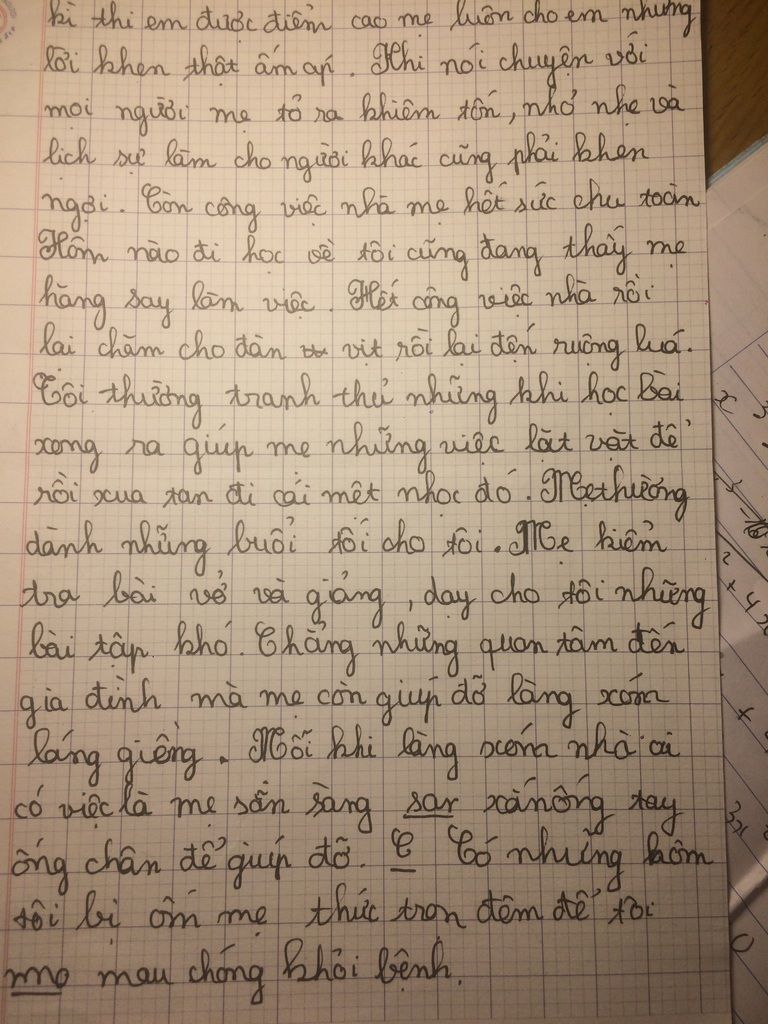 kì thi em được điểm cao mẹ luôn cho em nhưng
lời khen thật ấm áp. Khi nói chuyện với
mọi người mẹ tỏ ra khiêm tốn, nhỏ nhẹ và
lịch sự làm cho người khác cũng phải khen
ngợi. Còn công việc nhà mẹ hết sức chu toàn
Hôm nào đi học về tôi cũng đang thấy mẹ
hăng say làm việc. Hết công việc nhà rồi
lại chăm cho đàn vịt rồi lại đến ruộng luá.
Tôi thường tranh thủ những khi học bài
xong ra giúp mẹ những việc lặt vặt để
rồi xua tan đi cái mệt nhọc đó. Mẹ thường
dành những buổi tối cho tôi. Mẹ kiểm
tra bài vở và giảng, dạy cho tôi những
bài tập khó. Chẳng những quan tâm đến
gia đình mà mẹ còn giúp đỡ làng xóm
láng giềng. Mỗi khi làng xóm nhà ai
có việc là mẹ sẵn sàng sar xắn ống tay
ống chân để giúp đỡ. C Có những hôm
tôi bị ốm mẹ thức trọn đêm để tôi
mo mau chóng khỏi bệnh.